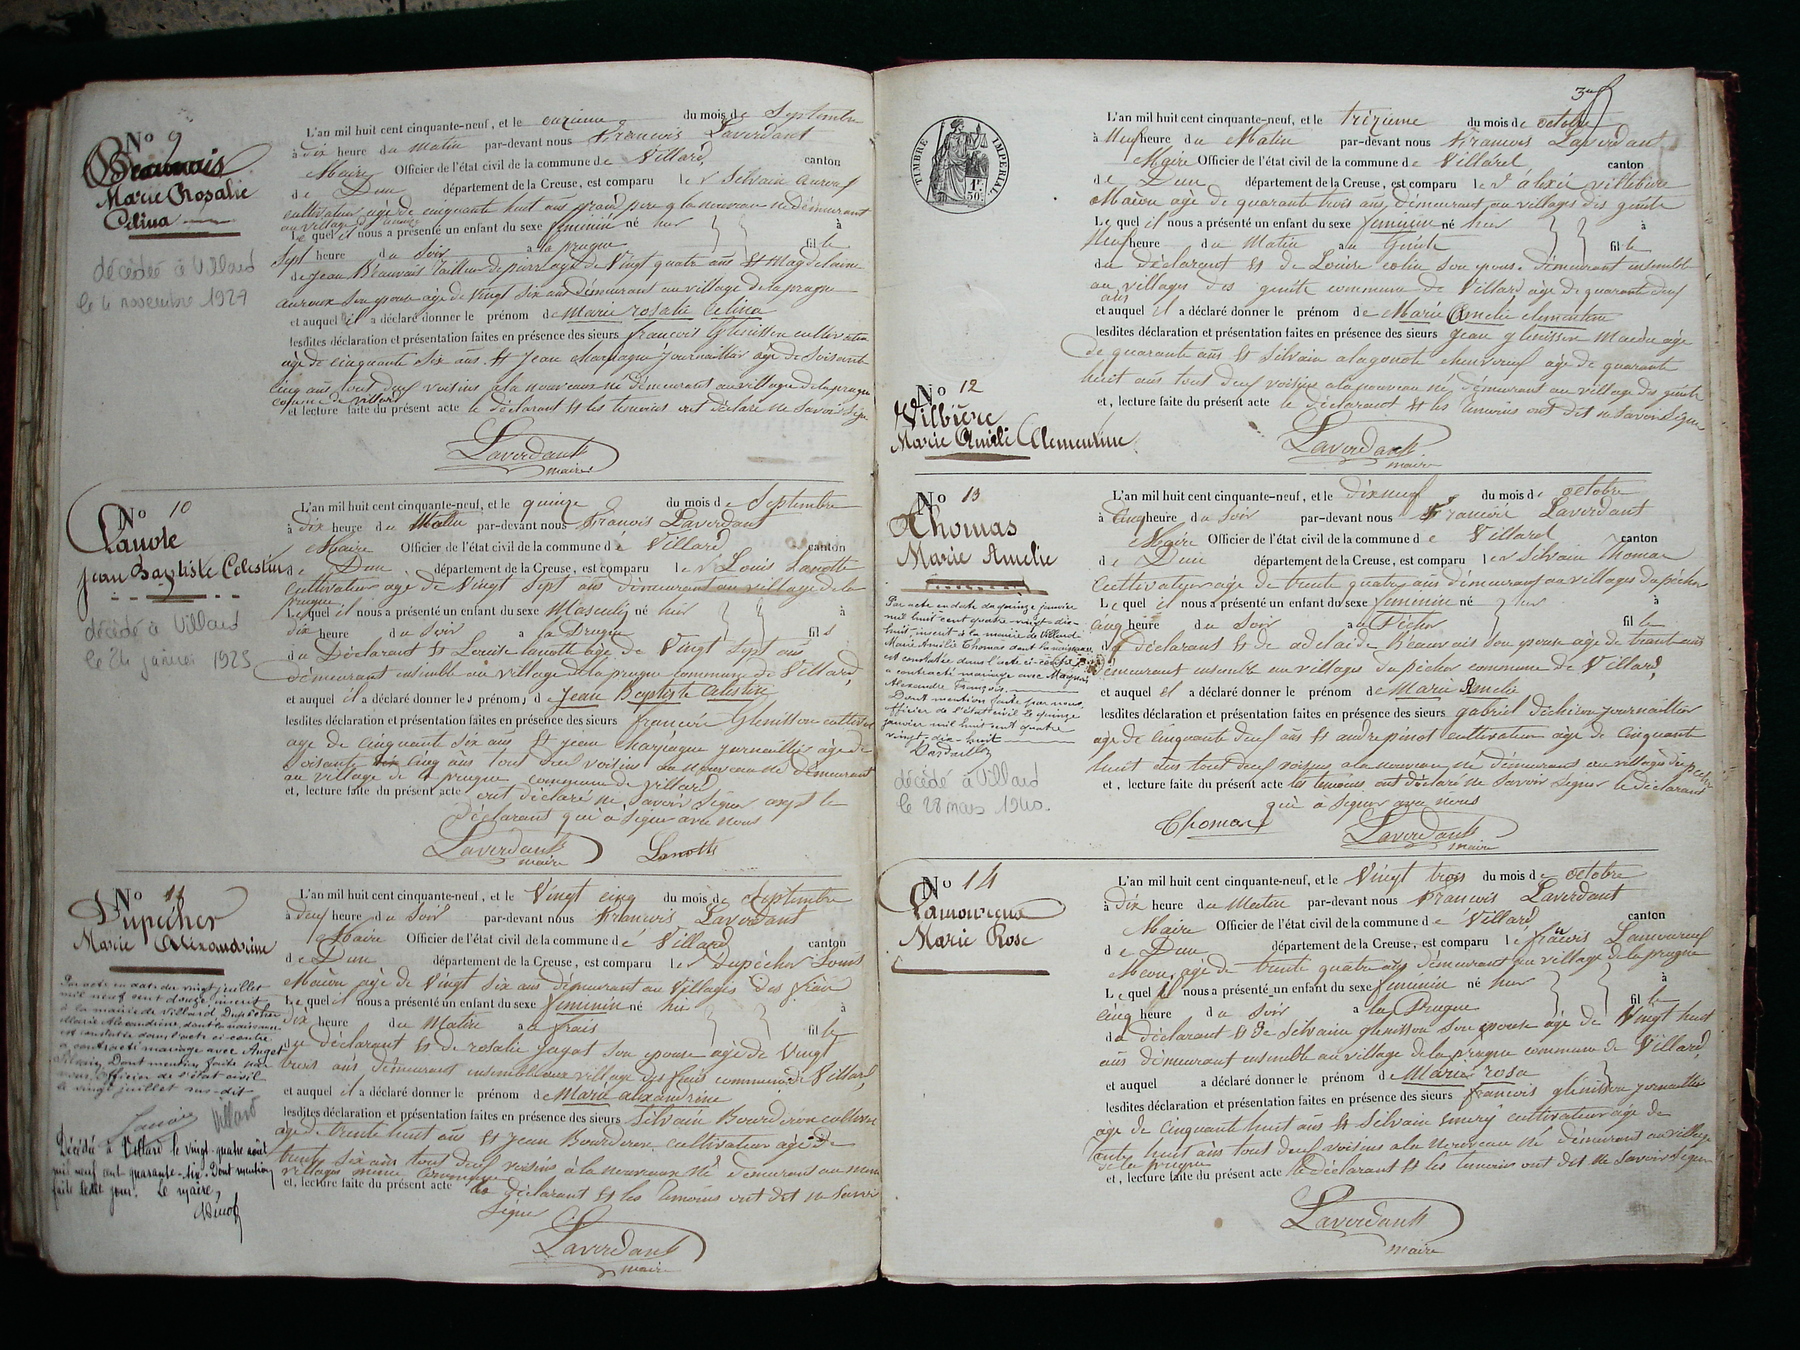 No 9
Beauvais
Marie Rosalie
Célina
décédée à Villard
le 4 novembre 1927
L'an mil huit cent cinquante-neuf, et le onzieme du mois de Septembre
à dix heure du Matin par-devant nous François Laverdant
Maire Officier de l'état civil de la commune de Villard, canton
de Dun département de la Creuse, est comparu le Sr Silvain auroux
cultivateur age de cinquante huit ans grand pere a la nouveau né demeurant
au village
Le quel il nous a présenté un enfant du sexe feminin né hier à
sept heure du Soir a la prugne fil le
de Jean Beauvais tailleur de pierre age de Vingt quatre ans Et Magdelaine
auroux son epouse age de Vingt Six ans demeurant au village de la prugne
et auquel il a déclaré donner le prénom de Marie rosalie Celina
lesdites déclaration et présentation faites en présence des sieurs francois Glenisson cultivateur
age de cinquante Six ans Et Jean charpagne journaillier age de Soisante
cinq ans tout deux voisins a la nouveaux né demeurant au village de la prugne
comune de villard
et lecture faite du présent acte le déclarant Et les temoins ont déclaré ne Savoir Signe
Laverdant
maire
No 10
Lanote
Jean Baptiste Célestin
décédé à Villard
le 24 janvier 1925
L'an mil huit cent cinquante-neuf, et le quinze du mois de Septembre
à dix heure du Matin par-devant nous François Laverdant
Maire Officier de l'état civil de la commune de Villard, canton
de Dun département de la Creuse, est comparu le Sr Louis Lanotte
Cultivateur age de Vingt Sept ans demeurant au village de la
prugne
Le quel il nous a présenté un enfant du sexe Masculin né hier à
dix heure du Soir a la Prugne fil s
du Déclarant Et Louise lanotte age de Vingt Sept ans
demeurant ensimble au village de la prugne commune de Villard,
et auquel il a déclaré donner les prénoms de Jean Baptiste Celestin
lesdites déclaration et présentation faites en présence des sieurs françois Glenisson cultivateur
age de cinquante Six ans Et jean charpagne journaillier age de
Soisante cinq ans tout deux voisins au nouveau né demeurant
au village de la prugne commune de villard
et, lecture faite du présent acte ont déclaré ne Savoir Signer exept le
déclarant qui a Signer avec nous
Laverdant
maire
Lanotte
No 11
Dupêcher
Marie Alexandrine
Par acte en date du vingt juillet
mil neuf cent douze, inscrit
à la mairie de Villard Dupêcher
Marie Alexandrine, dont la naissance
est constatée dans l'acte ci-contre
a contracté mariage avec Auget
Silvain. Dont mention faite par
nous, officier de l'état civil
le vingt juillet sus-dit
Villard
Décédée à Villard le vingt-quatre août
mil neuf cent quarante-six. Dont mention
faite cedit jour. Le maire,
L'an mil huit cent cinquante-neuf, et le Vingt cinq du mois de Septembre
à deux heure du Soir par-devant nous François Laverdant
Maire Officier de l'état civil de la commune de Villard, canton
de Dun département de la Creuse, est comparu le Sr Dupêcher Louis
Maçon age de Vingt Six ans demeurant au Villages des frais
Le quel il nous a présenté un enfant du sexe feminin né hie à
dix heure du Matin a frais fil le
du déclarant Et de rosalie jagot Son epouse age de Vingt
trois ans demeurant ensemble au village des frais commune de Villard,
et auquel il a déclaré donner le prénom de Marie alexandrine
lesdites déclaration et présentation faites en présence des sieurs Silvain Bourderie cultivateur
age de trente huit ans Et Jean Bourderie cultivateur age de
trente Six ans tout deux voisins à la nouveaux né demeurant au mem
villages meme commune
et, lecture faite du présent acte le déclarant Et les témoins ont dit ne Savoir
Signer
Laverdant
maire
TIMBRE IMPERIAL
1F. 50c.
No 12
Vilbière
Marie Amélie Clementine
L'an mil huit cent cinquante-neuf, et le trézieme du mois de octobre
à Neuf heure du Matin par-devant nous François Laverdant
Maire Officier de l'état civil de la commune de Villard canton
de Dun département de la Creuse, est comparu le Sr aléxis villebiere
Maçon age de quarante trois ans, demeurant au villages des genête
Le quel il nous a présenté un enfant du sexe feminin né hier à
Neuf heure du Matin a Genête fil le
du déclarant Et de Louise colin Son epouse demeurant ensemble
au villages des genête commune de Villard age de quarante deux
ans
et auquel il a déclaré donner le prénom de Marie Amelie clementine
lesdites déclaration et présentation faites en présence des sieurs jean glenisson age
de quarante ans Et Silvain age de quarante
huit ans tout deux voisins a la nouveau né demeurant au village des genête
et, lecture faite du présent acte le déclarant Et les témoins ont dit ne Savoir Signer
Laverdant
maire
No 13
Thomas
Marie Amelie
Par acte en date du quinze janvier
mil huit cent quatre-vingt-dix-
huit, inscrit à la mairie de Villard
Marie Amélie Thomas dont la naissance
est constatée dans l'acte ci-contre
a contracté mariage avec Magnier
Alexandre François.
Dont mention faite par nous
officier de l'état civil le quinze
janvier mil huit cent quatre
vingt-dix-huit
décédé à Villard
le 28 mars 1940.
L'an mil huit cent cinquante-neuf, et le dix neuf du mois de octobre
à cinq heure du Soir par-devant nous François Laverdant
Maire Officier de l'état civil de la commune de Villard canton
de Dun département de la Creuse, est comparu le Sr Silvain Thomas
Cultivateur age de trente quatre ans demeurant au villages du pêcher
Le quel il nous a présenté un enfant du sexe feminin né hier à
cinq heure du Soir au Pêcher fil le
du déclarant Et de adelaide beauvais Son epouse age de trante ans
demeurant ensemble au villages du pêcher commune de Villard,
et auquel il a déclaré donner le prénom de Marie Amelie
lesdites déclaration et présentation faites en présence des sieurs gabriel déchiron journaillier
age de cinquante deux ans Et andre pinot cultivateur age de Cinquante
huit ans tout deux voisins a la nouveau né demeurant au village du pecher
et, lecture faite du présent acte les temoins ont déclaré ne Savoir Signer le déclarant
qui a Signer avec nous
Thomas
Laverdant
maire
No 14
Lamoureux
Marie Rose
L'an mil huit cent cinquante-neuf, et le Vingt trois du mois de octobre
à dix heure du Matin par-devant nous François Laverdant
Maire Officier de l'état civil de la commune de Villard, canton
de Dun département de la Creuse, est comparu le francois Lamoureux
Macon, age de trente quatre ans demeurant au village de la prugne
Le quel il nous a présenté un enfant du sexe feminin né hier à
cinq heure du Soir a la Prugne fil le
du déclarant Et de Silvaine glenisson Son epouse age de Vingt huit
ans demeurant ensemble au village de la prugne commune de Villard,
et auquel a déclaré donner le prénom de Marie rosa
lesdites déclaration et présentation faites en présence des sieurs francois glenisson journaillier
age de cinquante huit ans Et Silvain emery cultivateur age de
trente huit ans tout deux voisins a la nouveau né demeurant au village
de la prugne
et, lecture faite du présent acte le déclarant Et les temoins ont dit ne Savoir Signer
Laverdant
maire